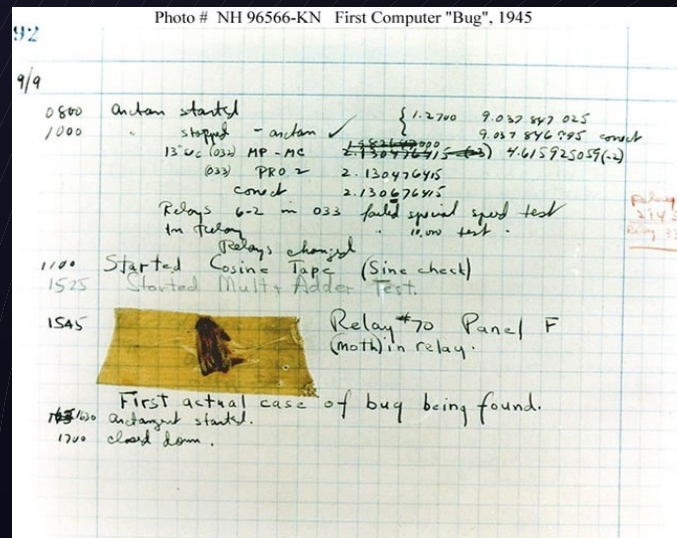 Photo # NH 96566-KN First Computer "Bug", 1945
92
9/9
0800 antan started
1000 " stopped - antan ✓ { 1.2700 9.037 847 025
9.037 846 995 correct
13" uc (032) MP - MC 2.130476415 (-3) 4.615925059(-2)
(033) PRO 2 2.130476415
correct 2.130676415
Relays 6-2 in 033 failed special speed test
In Relay " 10,000 test .
Relays changed
1100 Started Cosine Tape (Sine check)
1525 Started Mult + Adder Test.
1545 Relay #70 Panel F
(moth) in relay.
First actual case of bug being found.
1630 antangent started.
1700 closed down .
Relay
Relay